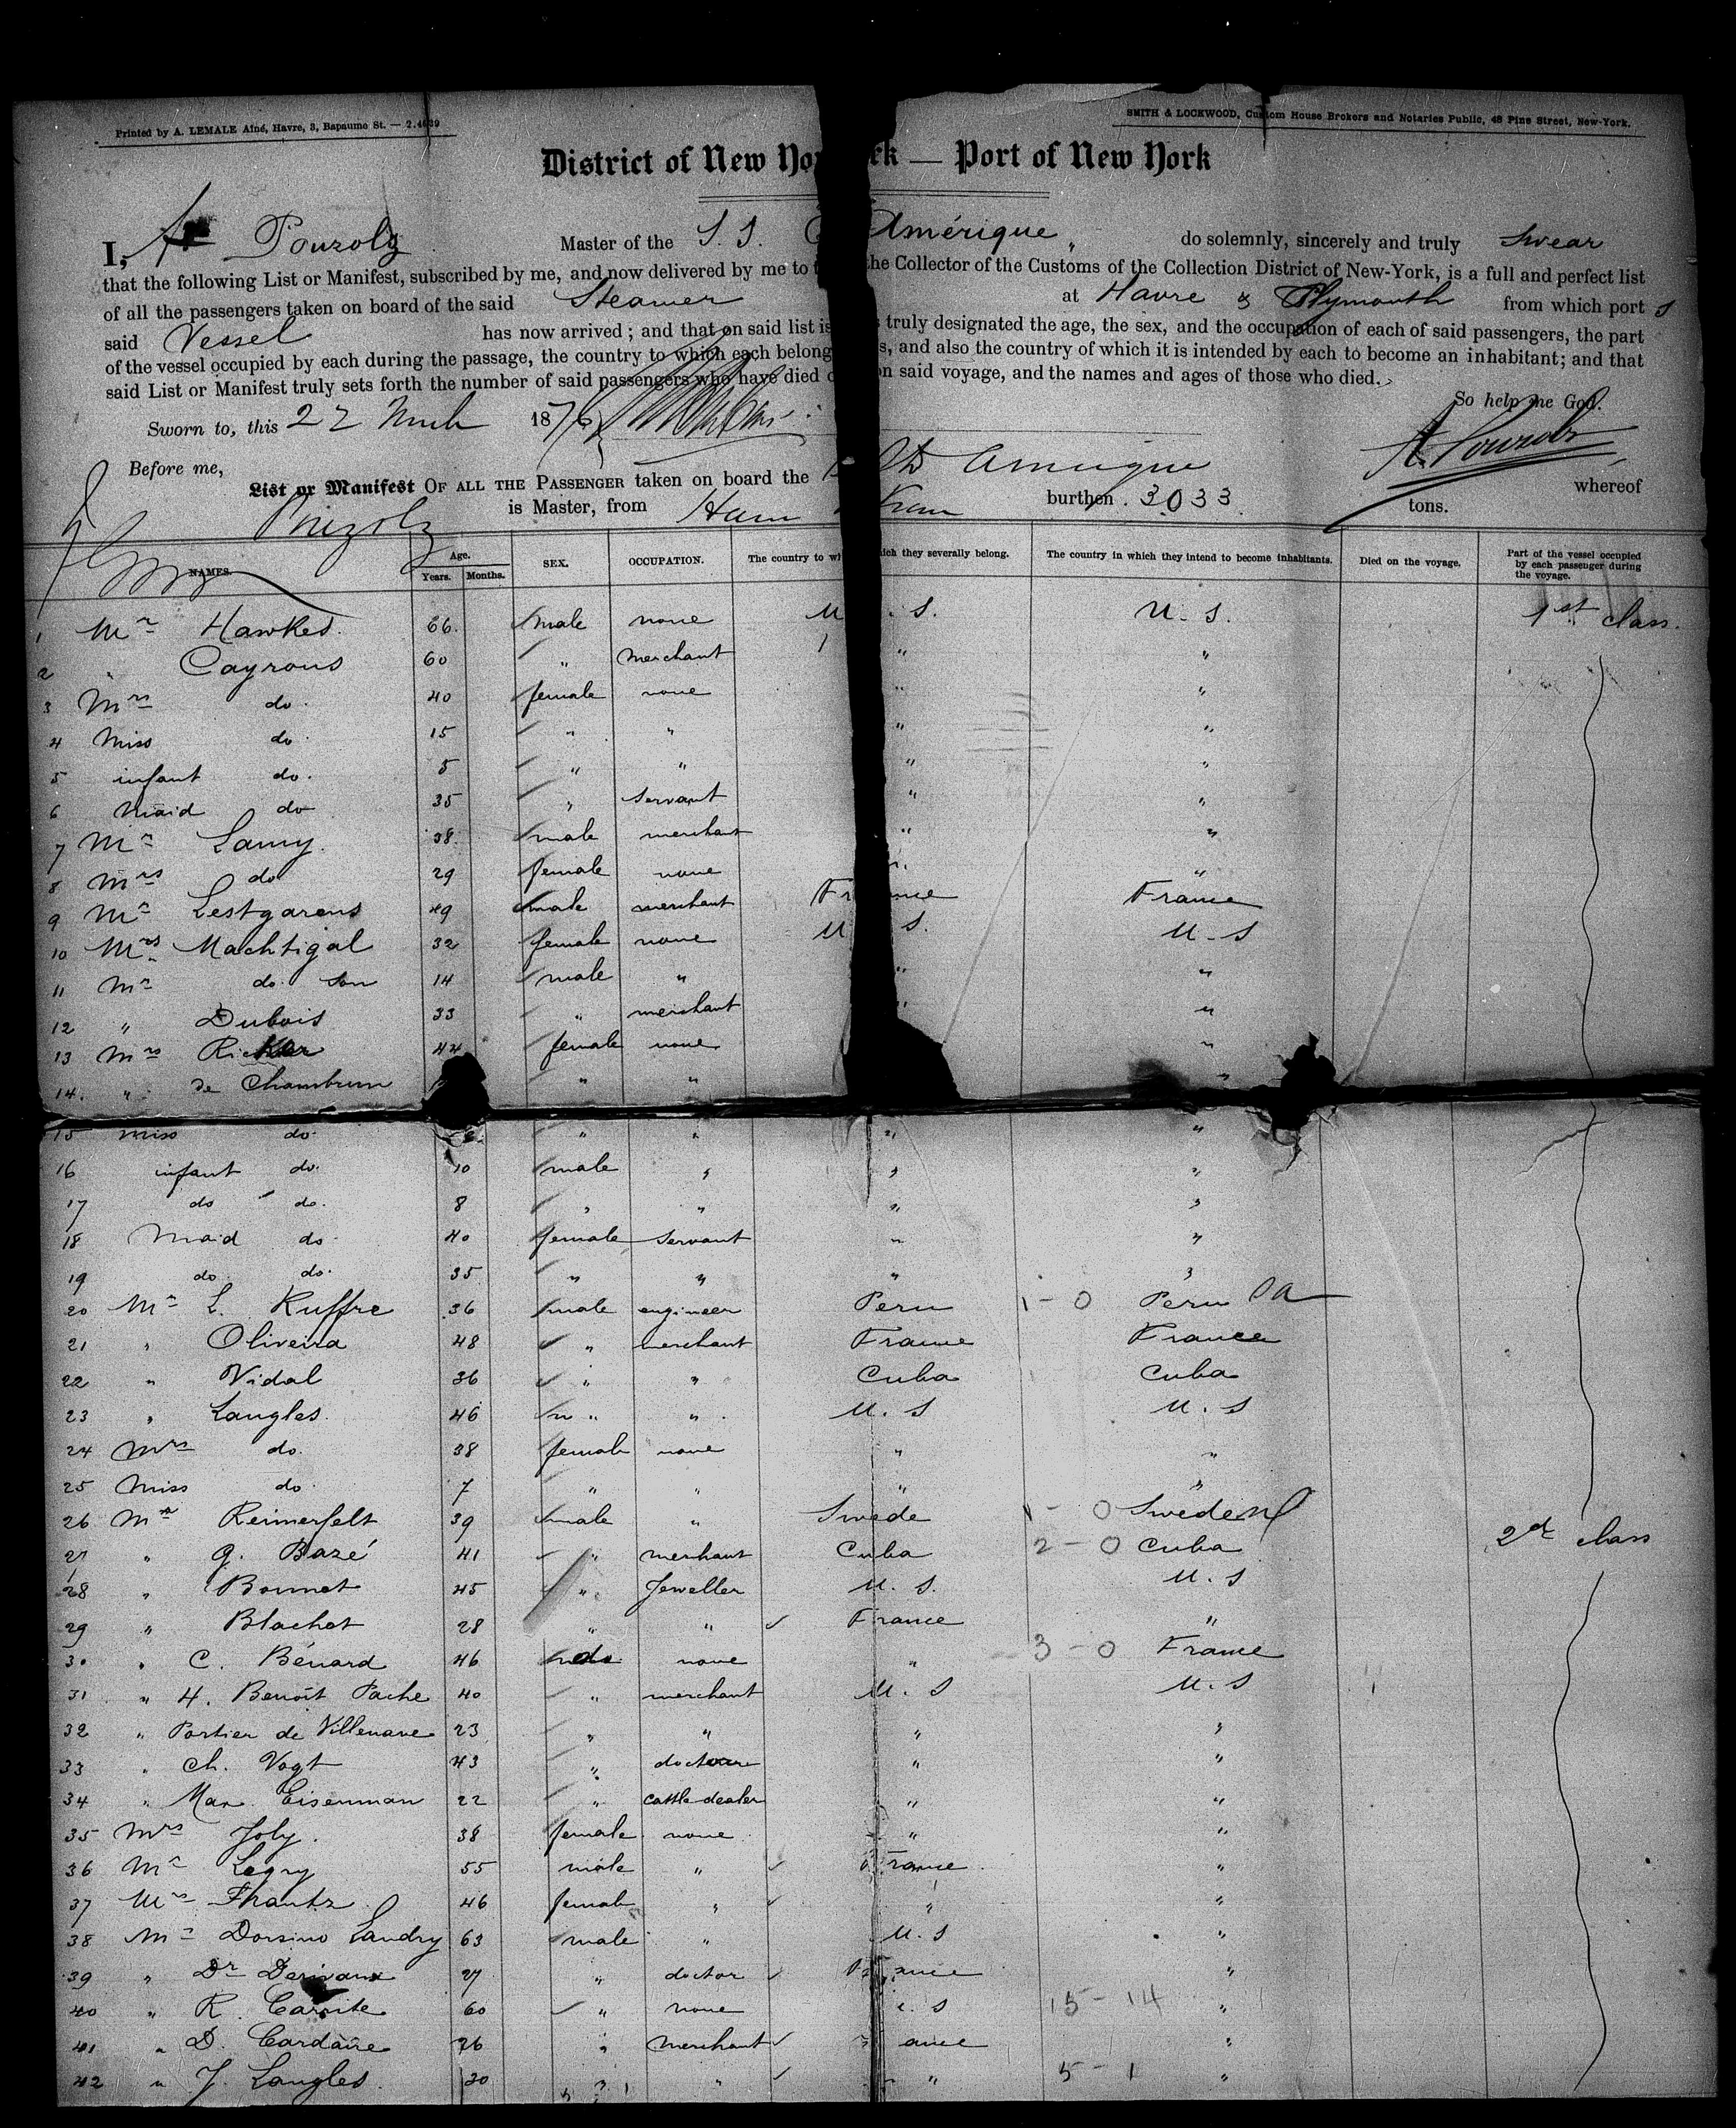 Printed by A. LEMALE Aîné, Havre, 3, Bapaume St. — 2.4639
SMITH & LOCKWOOD, Custom House Brokers and Notaries Public, 48 Pine Street, New-York.
District of New York — Port of New York
I, A Pouzolz Master of the S. S. Amérique do solemnly, sincerely and truly swear
that the following List or Manifest, subscribed by me, and now delivered by me to the Collector of the Customs of the Collection District of New-York, is a full and perfect list
of all the passengers taken on board of the said Steamer at Havre & Plymouth from which port s
said Vessel has now arrived; and that on said list is truly designated the age, the sex, and the occupation of each of said passengers, the part
of the vessel occupied by each during the passage, the country to which each belongs, and also the country of which it is intended by each to become an inhabitant; and that
said List or Manifest truly sets forth the number of said passengers who have died on said voyage, and the names and ages of those who died.
So help me God.
Sworn to, this 22 March 1876
A. Pouzolz
Before me,
List or Manifest OF ALL THE PASSENGER taken on board the Amerique whereof
Pouzolz is Master, from Havre burthen 3033 tons.
NAMES. Age. Years. Months. SEX. OCCUPATION. The country to which they severally belong. The country in which they intend to become inhabitants. Died on the voyage. Part of the vessel occupied by each passenger during the voyage.
1 Mr Hawkes. 66. male none U. S. U. S. 1st class.
2 " Cayrous 60 " merchant " "
3 Mrs do. 40 female none " "
4 Miss do. 15 " " " "
5 infant do. 5 " " " "
6 Maid do 35 " servant " "
7 Mr Lamy. 38. male merchant " "
8 Mrs do 29 female none " "
9 Mr Lestgarens 49 male merchant France France
10 Mrs Machtigal 32 female none U S. U. S
11 Mr do. Son 14 male " " "
12 " Dubois 33 " merchant " "
13 Mrs 44 female none "
14. " de Chambrun " " "
15 Miss do. " " " "
16 infant do. 10 male " " "
17 do do. 8 " " " "
18 Maid do 40 female servant " "
19 do do. 35 " " " "
20 Mr L. Ruffre 36 male engineer Peru 1-0 Peru
21 " Oliveira 48 " merchant France France
22 " Vidal 36 " " Cuba Cuba
23 " Langles. 46 " " U. S U. S
24 Mrs do. 38 female none " "
25 Miss do. 7 " " " "
26 Mr Reimerfelt 39 male " Swede 1-0 Sweden
27 " G. Bazé 41 " merchant Cuba 2-0 Cuba 2d class
28 " Bonnet 45 " Jeweller U. S. U. S
29 " Blachet 28 " " France "
30 " C. Bénard 46 do none " 3-0 France
31 " H. Benoît Pache 40 " merchant U. S U. S
32 " Portier de Villenave 23 " " " "
33 " Ch. Vogt 43 " " "
34 " Max Eisenman 22 " cattle dealer " "
35 Mrs Joly. 38 female none " "
36 Mr Legry 55 male " France "
37 Mrs Frantz 46 female " " "
38 Mr Dorsino Landry 63 male " U. S "
39 " Dr 27 " doctor France "
40 " R. 60 " none U. S 15-14 "
41 " D. Cardaire 26 " merchant France "
42 " J. Langles. 30 " " " 5-1 "